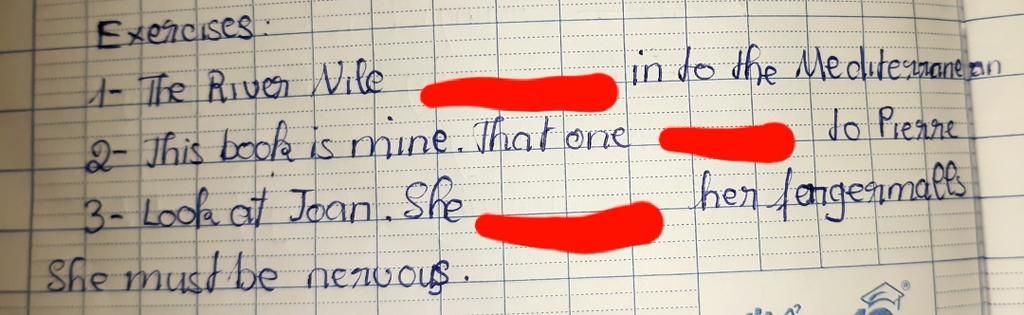 Exercises:
1- The River Nile in to the Mediterranean
2- This book is mine. That one to Pierre
3- Look at Joan. She her fengernails
She must be nervous.